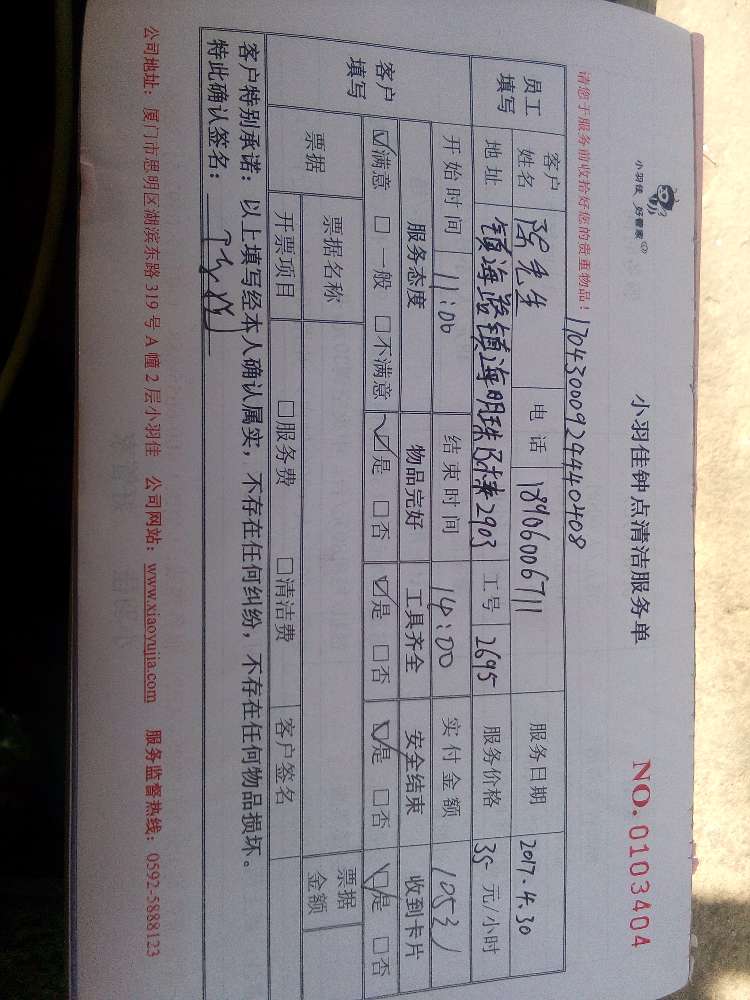 小羽佳 好管家
小羽佳钟点清洁服务单
NO. 0103404
请您于服务前收拾好您的贵重物品！
17043000924440408
员工填写 客户姓名 先生 电话 18906006711 服务日期 2017.4.30
地址 镇海路镇海明珠 2903 工号 2695 服务价格 35 元/小时
客户填写 开始时间 11:00 结束时间 14:00 实付金额 105元
服务态度 物品完好 工具齐全 安全结束 收到卡片
☑满意 □一般 □不满意 ☑是 □否 ☑是 □否 ☑是 □否 ☑是 □否
票据 票据名称 票据金额
开票项目 □服务费 □清洁费 客户签名
客户特别承诺：以上填写经本人确认属实，不存在任何纠纷，不存在任何物品损坏。
特此确认签名：
公司地址：厦门市思明区湖滨东路 319 号 A 幢 2 层小羽佳 公司网站：www.xiaoyujia.com 服务监督热线：0592-5888123